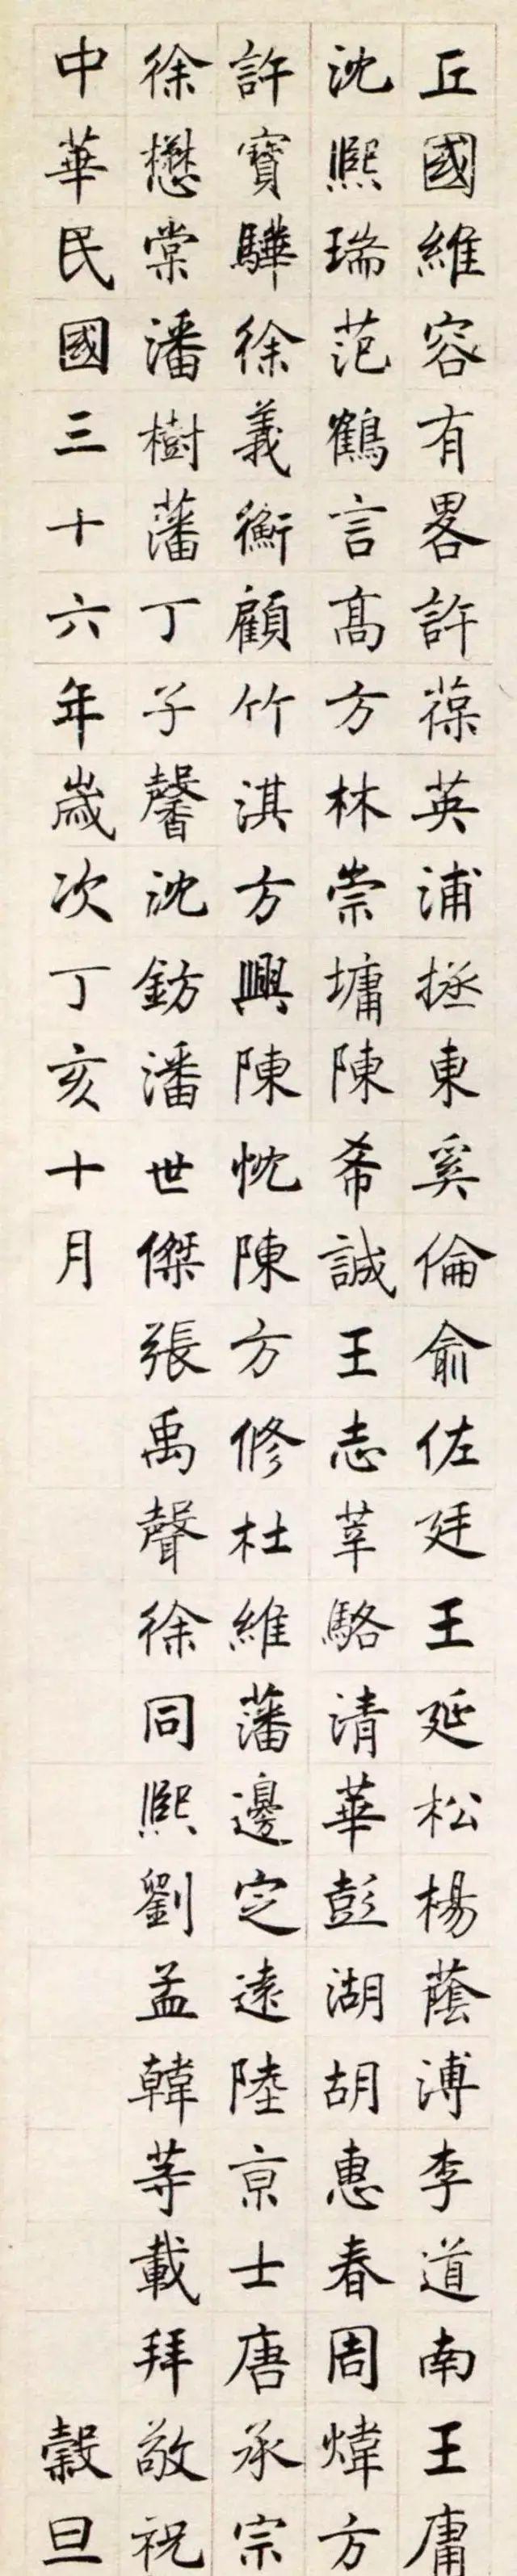 丘國維容有畧許葆英浦拯東奚倫俞佐廷王延松楊蔭溥李道南王庸
沈熙瑞范鶴言高方林崇墉陳希誠王志莘駱清華彭湖胡惠春周煒方
許寶驊徐義衡顧竹淇方興陳忱陳方修杜維藩邊定遠陸京士唐承宗
徐懋棠潘樹藩丁子馨沈鈁潘世傑張禹聲徐同熙劉孟韓等載拜敬祝
中華民國三十六年歲次丁亥十月穀旦